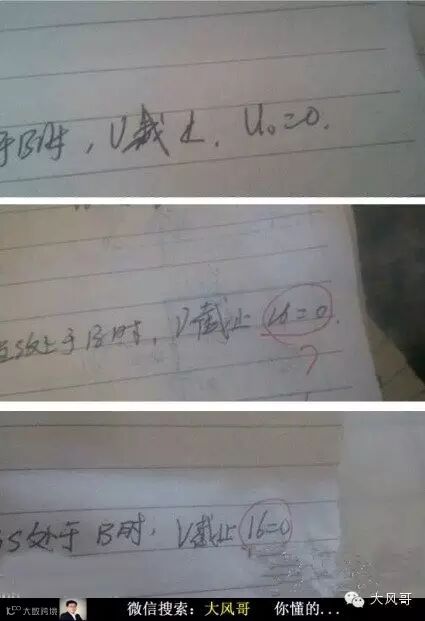 于B时，V截止．U₀=0．
当S处于B时，V截止 U=0．
?
当S处于B时，V截止 16=0
大风哥
10°° 大数跨境
微信搜索：大风哥 你懂的...